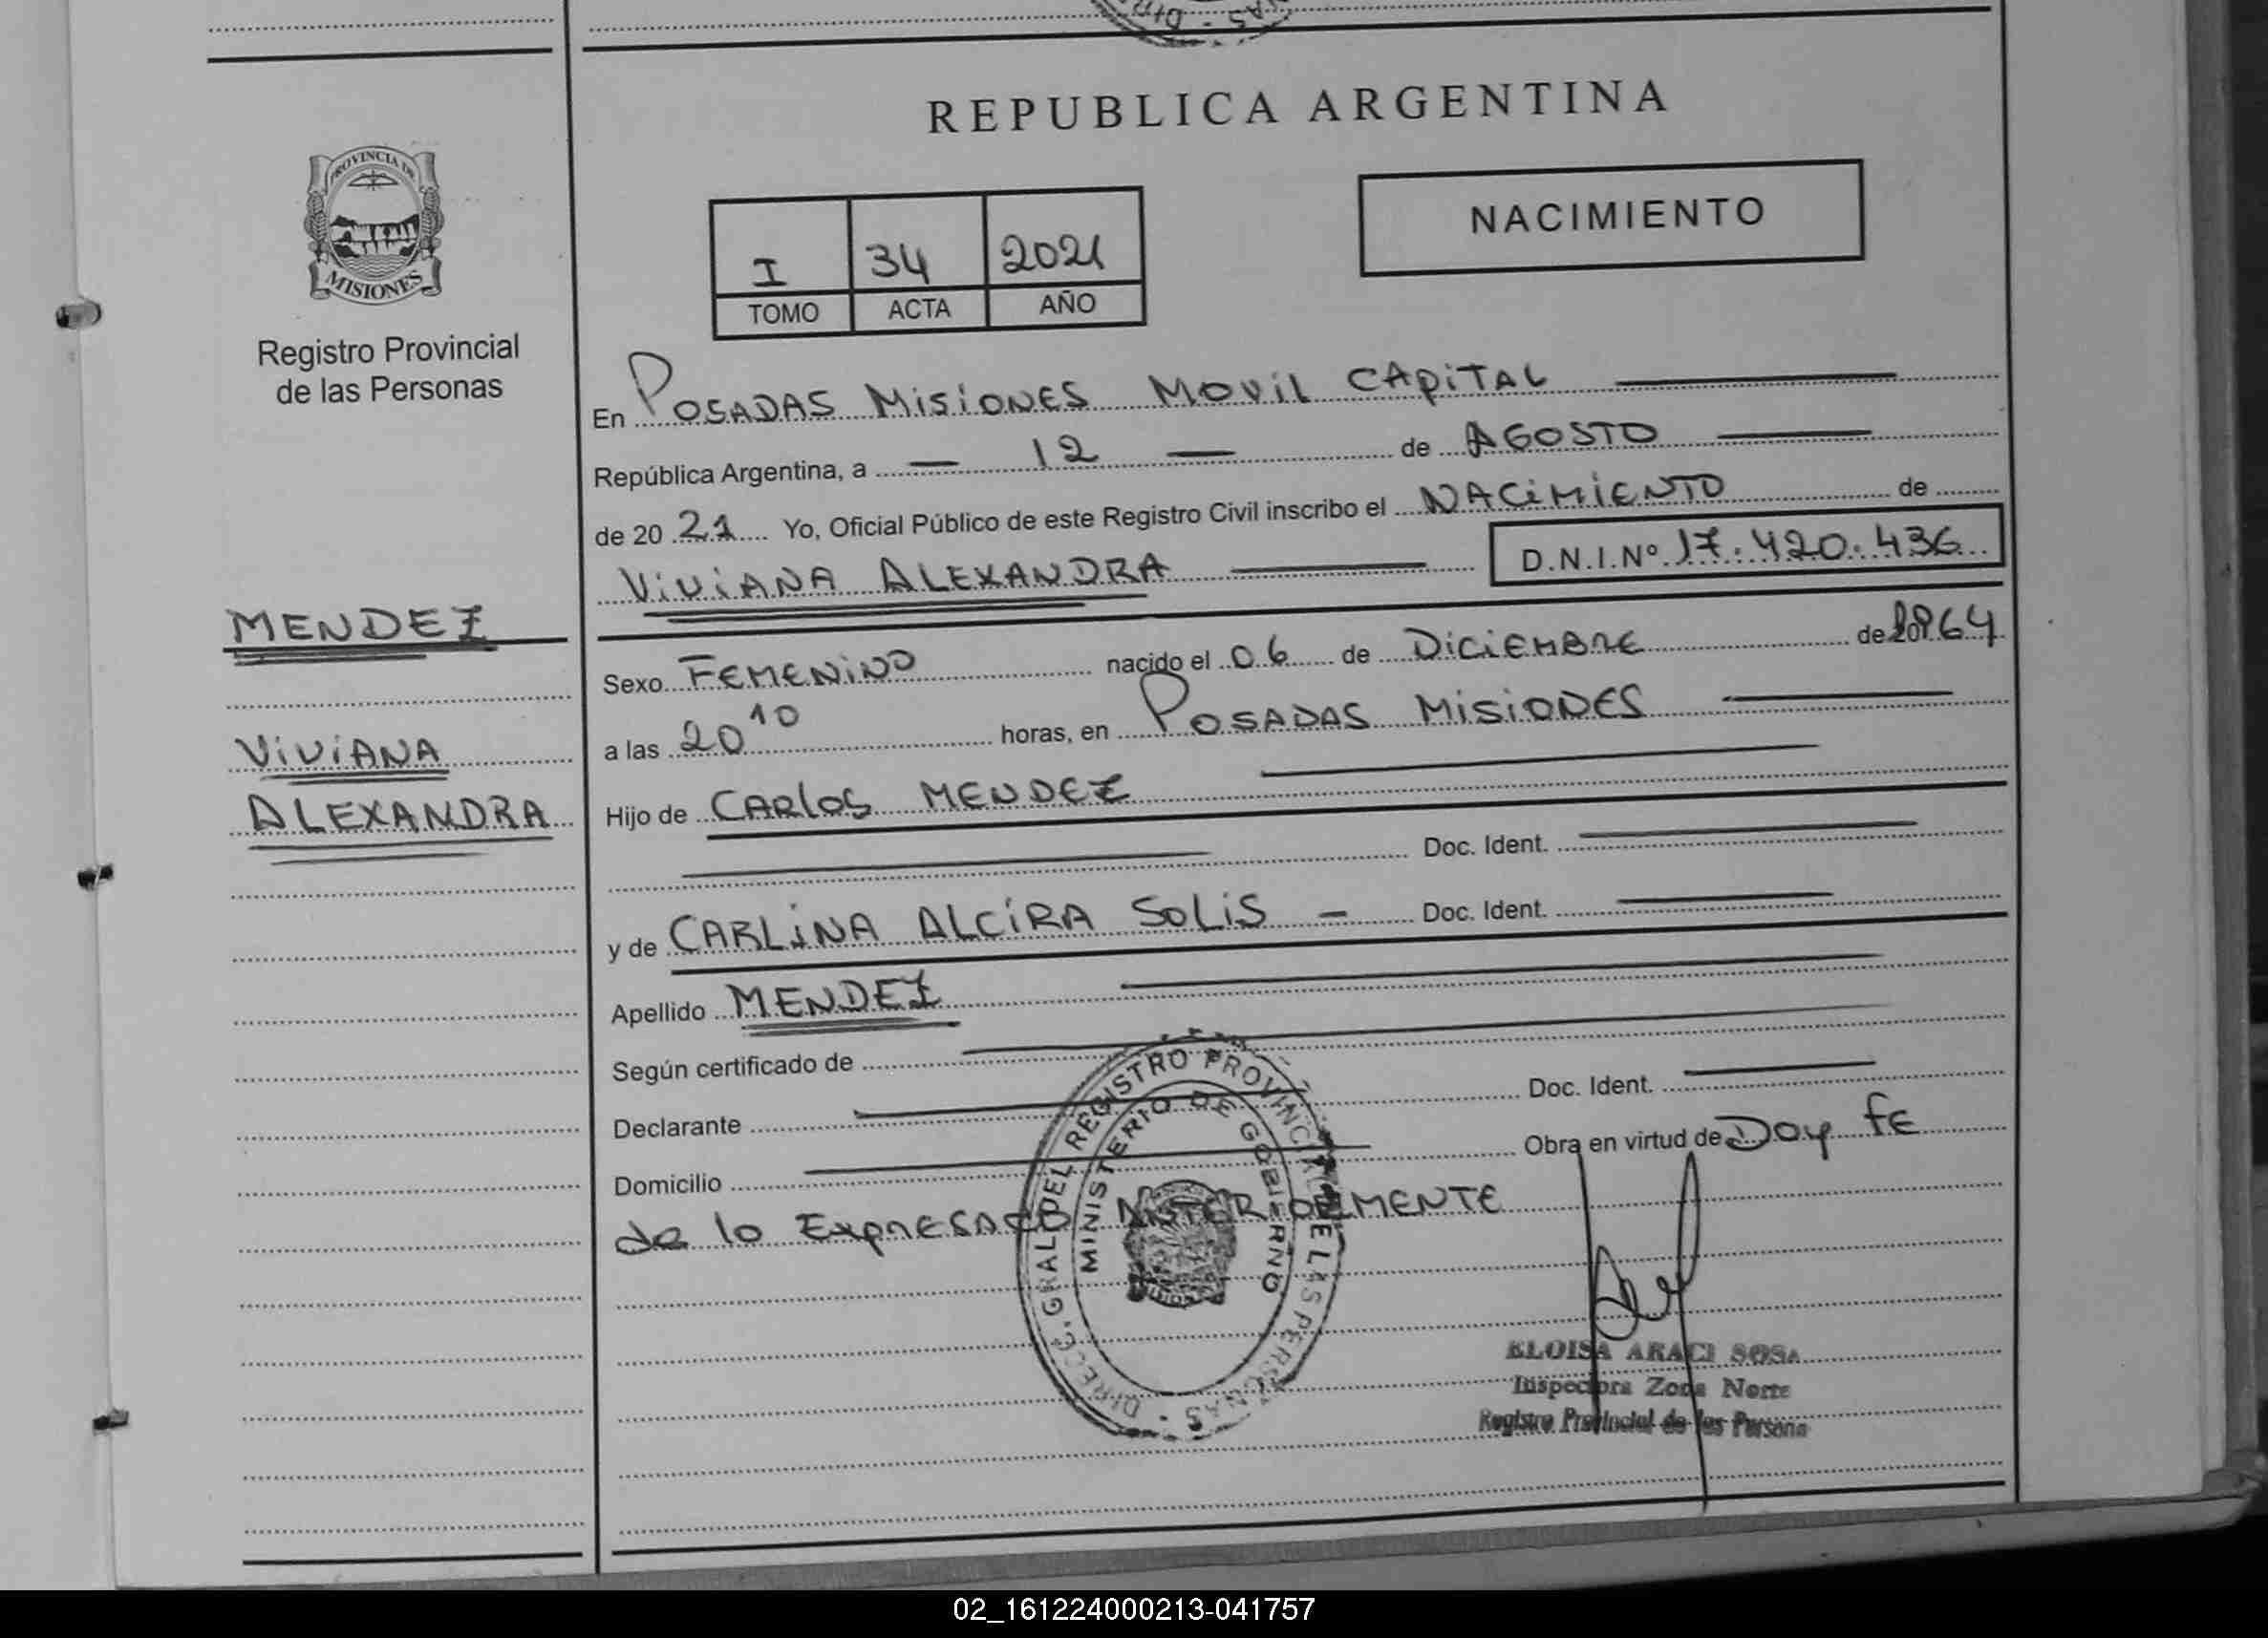 REPUBLICA ARGENTINA
PROVINCIA DE
MISIONES
Registro Provincial
de las Personas
NACIMIENTO
I 34 2021
TOMO ACTA AÑO
En POSADAS MISIONES MOVIL CAPITAL
República Argentina, a 12 de AGOSTO
de 20 21 Yo, Oficial Público de este Registro Civil inscribo el NACIMIENTO de
VIVIANA ALEXANDRA D.N.I.Nº 17.420.436
MENDEZ
VIVIANA
ALEXANDRA
Sexo FEMENINO nacido el 06 de DICIEMBRE de 1964
a las 20 10 horas, en POSADAS MISIONES
Hijo de CARLOS MENDEZ
Doc. Ident.
y de CARLINA ALCIRA SOLIS - Doc. Ident.
Apellido MENDEZ
Según certificado de
Declarante Doc. Ident.
Domicilio Obra en virtud de Doy FE
de lo EXPRESADO ANTERIORMENTE
DIRECC. GRAL DEL REGISTRO PROVINCIAL DE LAS PERSONAS
MINISTERIO DE GOBIERNO
ELOISA ARACI SOSA
Inspectora Zona Norte
Registro Provincial de las Persona
02_161224000213-041757